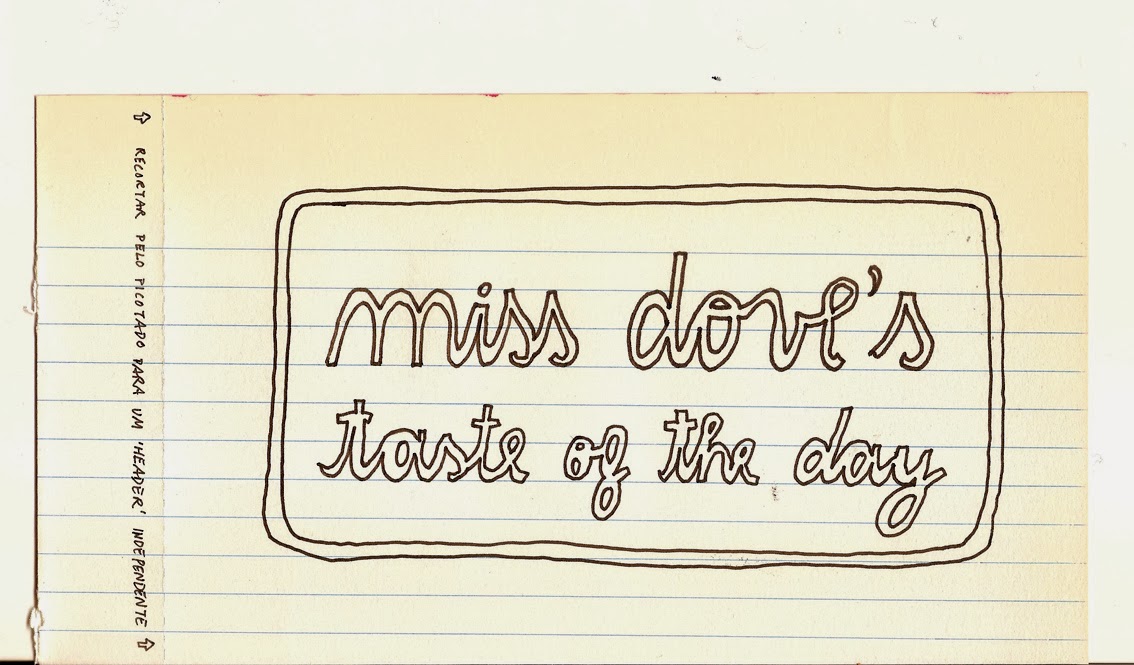 ⇧ RECORTAR PELO PICOTADO PARA UM 'HEADER' INDEPENDENTE ⇧
miss dove's
taste of the day